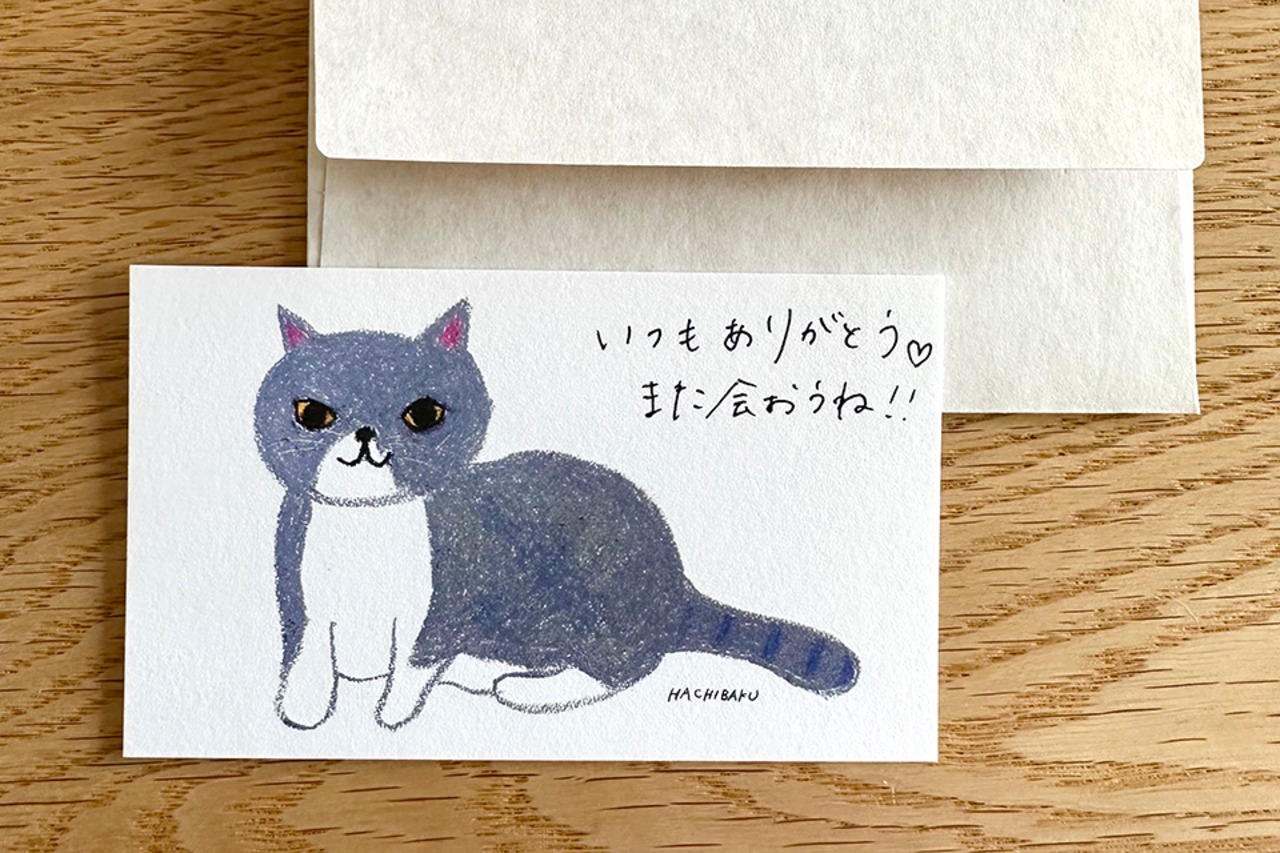 いつもありがとう♡
また会おうね!!
HACHIBAKU